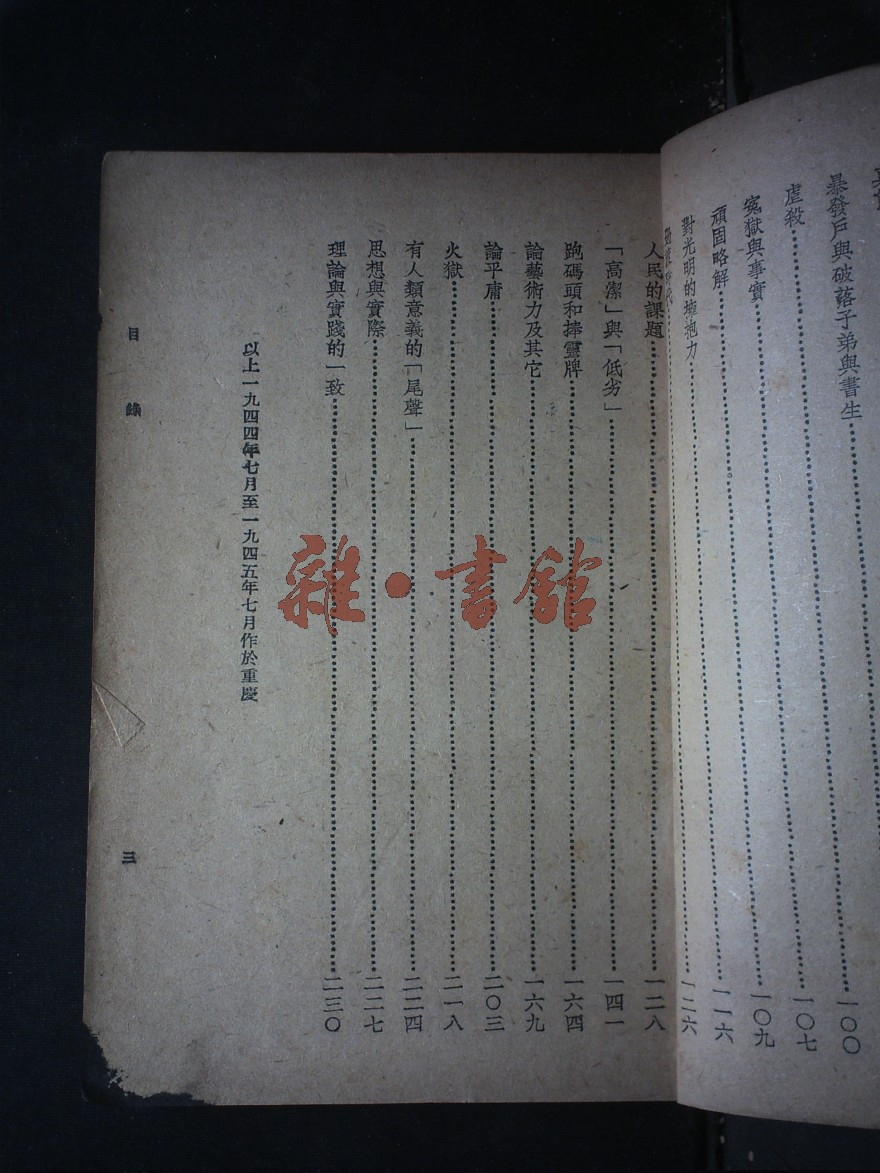 暴發戶與破落子弟與書生……一〇〇
虐殺……一〇七
冤獄與事實……一〇九
頑固略解……一一六
對光明的擁抱力……一二六
人民的課題……一二八
「高潔」與「低劣」……一四一
跑碼頭和捧靈牌……一六四
論藝術力及其它……一六九
論平庸……二〇三
火獄……二一八
有人類意義的「尾聲」……二二四
思想與實際……二二七
理論與實踐的一致……二三〇
以上一九四四年七月至一九四五年七月作於重慶
目錄
三
雜·書館